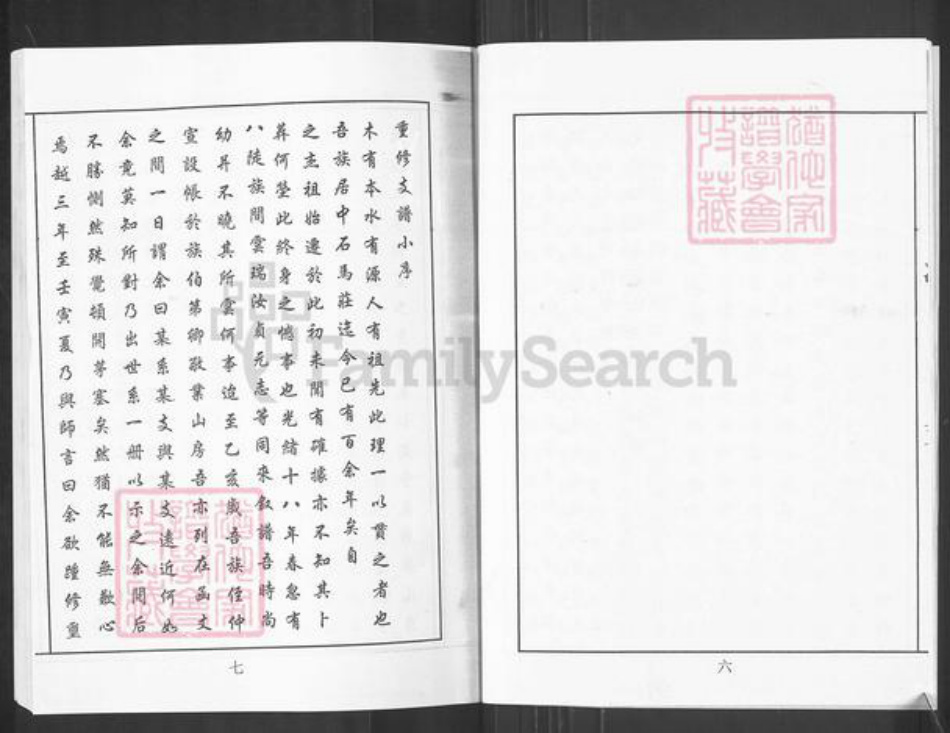 重修支譜小序
木有本水有源人有祖先此理一以貫之者也
吾族居中石馬莊迄今已有百余年矣自
之杰祖始遷於此初未聞有確據亦不知其卜
葬何塋此終身之憾事也光緒十八年春忽有
八陡族間雲瑞汝貞元志等同來叙譜吾時尚
幼并不曉其所雲何事迨至乙亥歲吾族侄仲
宣設帳於族伯第卿敬業山房吾亦列在函丈
之間一日謂余曰某系某支與某支遠近何如
余竟莫知所對乃出世系一册以示之余閱后
不勝惻然殊覺頓開茅塞矣然猶不能無歉心
焉越三年至壬寅夏乃與師言曰余欲踵修重
七
六
猶他家譜學會收藏
猶他家譜學會收藏
FamilySearch